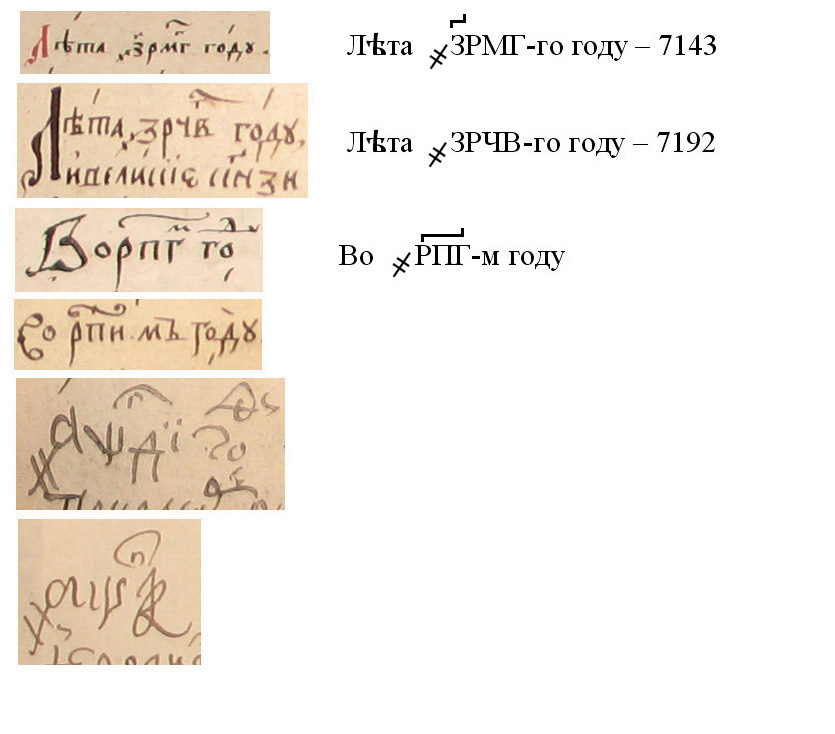 Лѣта ҂зрмг году. Лѣта ҂ЗРМГ-го году – 7143
Лѣта ҂зрчв году, Лѣта ҂ЗРЧВ-го году – 7192
Во рпг го Во ҂РПГ-м году
Во рпи мъ году
҂аѱдї го
҂аѱ